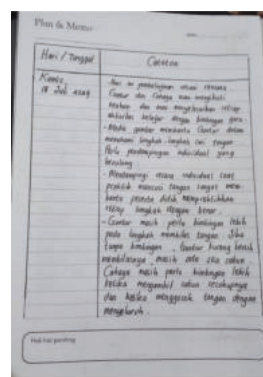 Plan & Memo
Hari / Tanggal
Catatan
Kamis,
18 Juli 2024
- Hari ini pembelajaran sesuai rencana
Guntur dan Cahaya mau mengikuti
arahan dan mau menyelesaikan setiap
aktivitas belajar dengan bimbingan guru.
- Media gambar membantu Guntur dalam
memahami langkah-langkah cuci tangan
Perlu pendampingan individual yang
berulang.
- Mendampingi secara individual saat
praktik mencuci tangan sangat mem-
bantu peserta didik mempraktikkan
setiap langkah dengan benar.
- Guntur masih perlu bimbingan lebih
pada langkah membilas tangan. Jika
tanpa bimbingan, Guntur kurang bersih
membilasnya, masih ada sisa sabun
Cahaya masih perlu bimbingan lebih
ketika mengambil sabun secukupnya
dan ketika menggosok tangan dengan
menyeluruh.